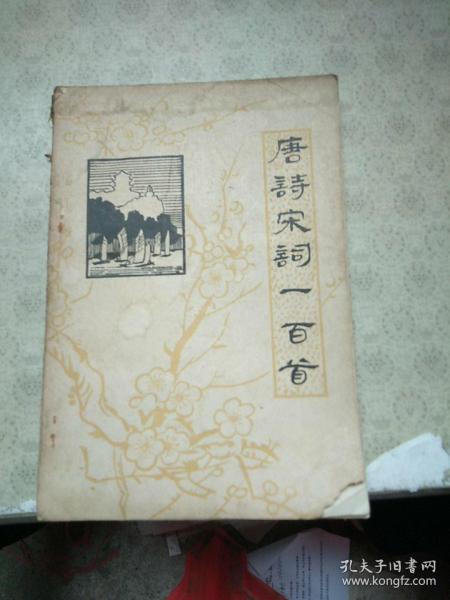 唐詩宋詞一百首
孔夫子旧书网
www.kongfz.com